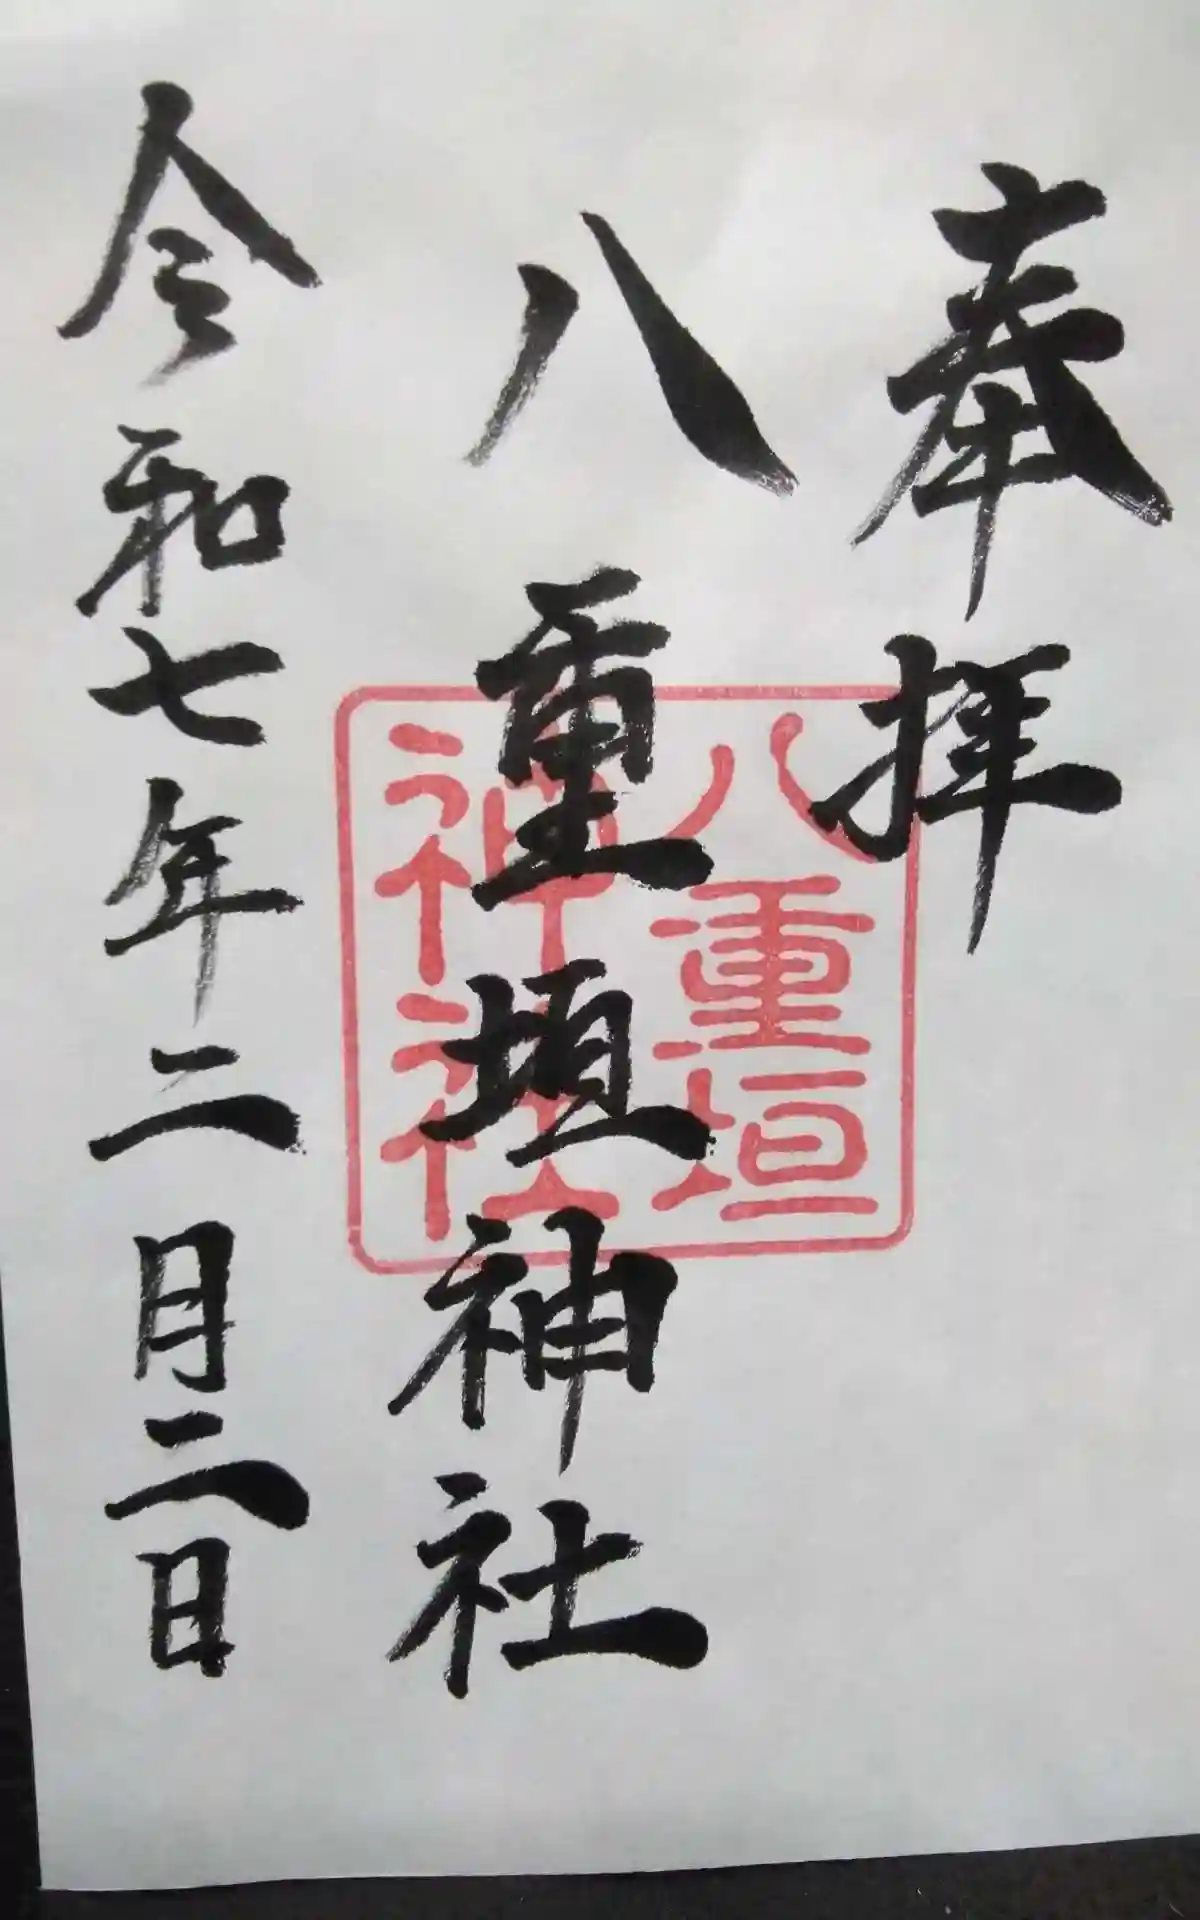 奉拝
八重垣
神社
八重垣神社
令和七年二月二日